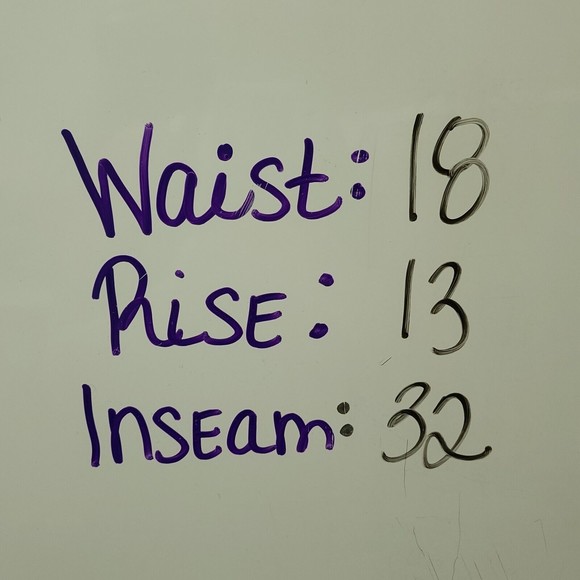 Waist: 18
Rise: 13
Inseam: 32